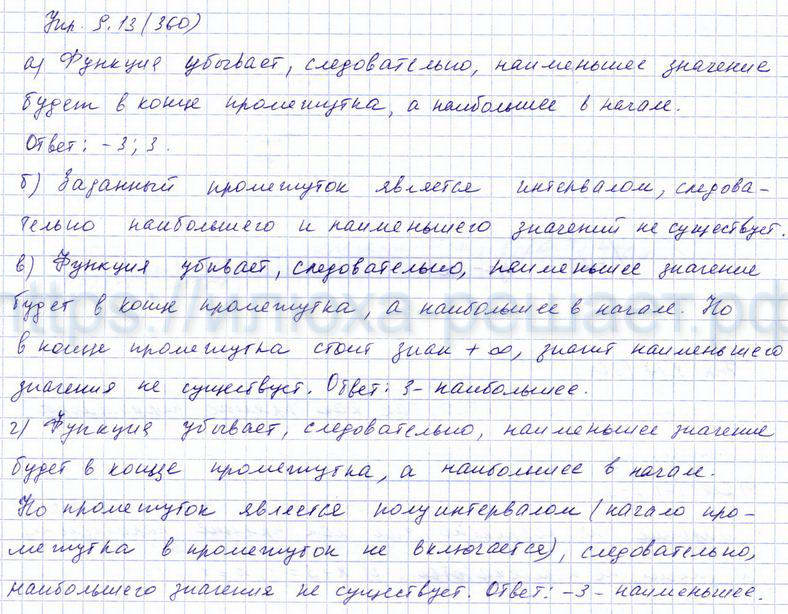 Упр. 9.13 (360)
а) Функция убывает, следовательно, наименьшее значение
будет в конце промежутка, а наибольшее в начале.
Ответ: -3; 3.
б) Заданный промежуток является интервалом, следова-
тельно наибольшего и наименьшего значений не существует.
в) Функция убивает, следовательно, наименьшее значение
будет в конце промежутка, а наибольшее в начале. Но
в конце промежутка стоит знак +∞, значит наименьшего
значения не существует. Ответ: 3- наибольшее.
г) Функция убывает, следовательно, наименьшее значение
будет в конце промежутка, а наибольшее в начале.
Но промежуток является полуинтервалом (начало про-
межутка в промежуток не включается), следовательно,
наибольшего значения не существует. Ответ: -3- наименьшее.